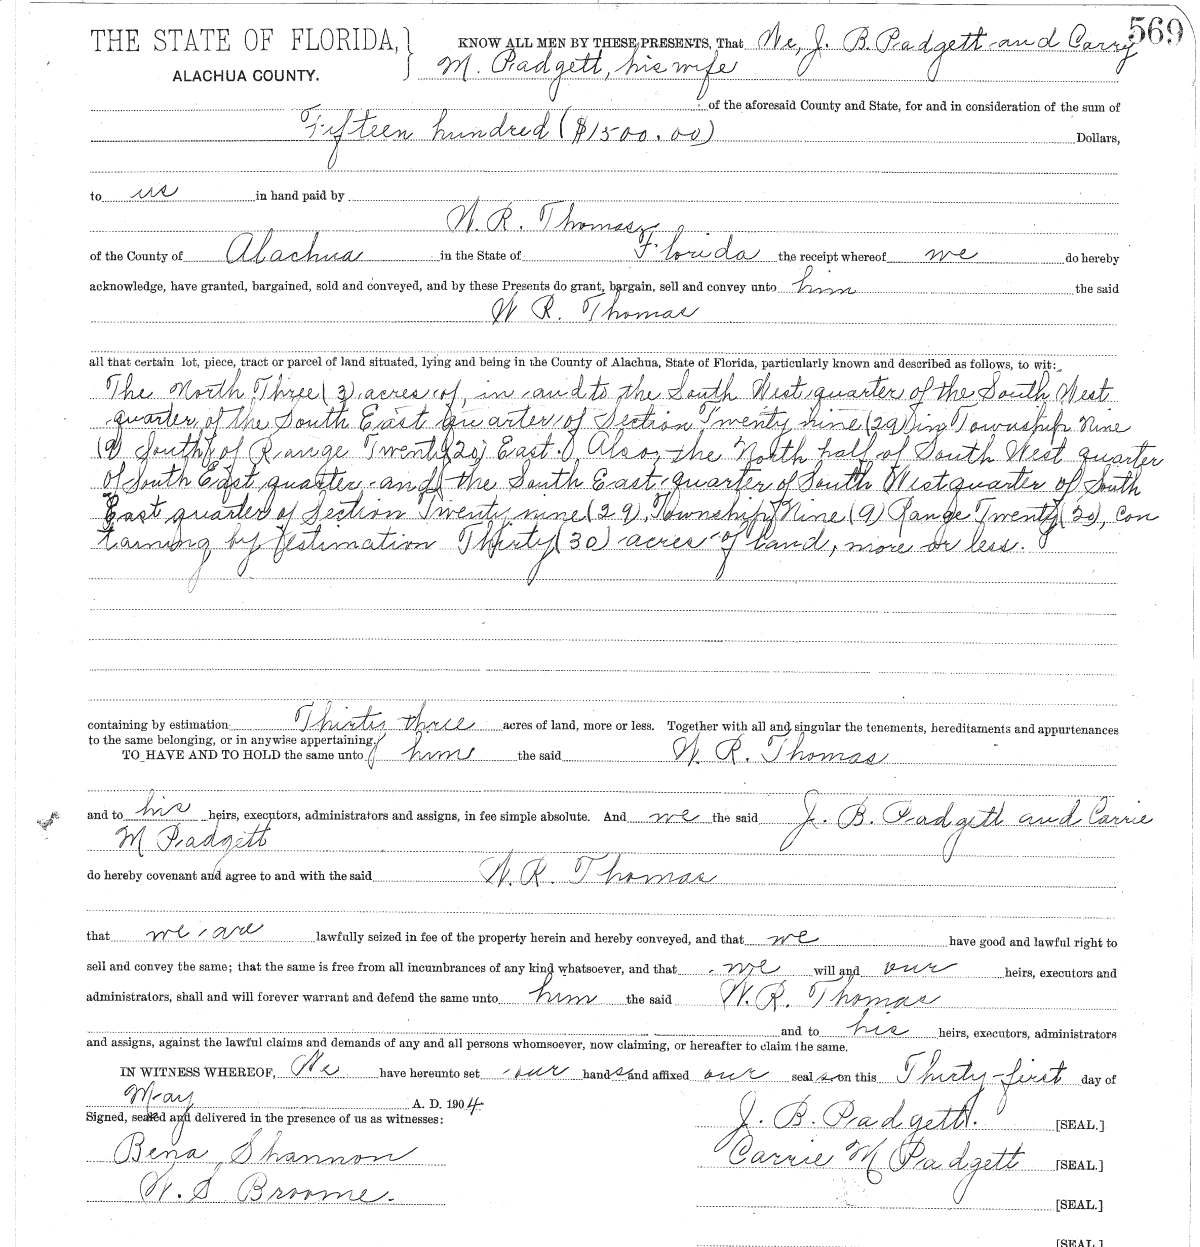 569
THE STATE OF FLORIDA, } KNOW ALL MEN BY THESE PRESENTS, That We, J. B. Padgett and Carry
ALACHUA COUNTY. M. Padgett, his wife
of the aforesaid County and State, for and in consideration of the sum of
Fifteen hundred ($1500.00) Dollars,
to us in hand paid by
W. R. Thomas,
of the County of Alachua in the State of Florida the receipt whereof we do hereby
acknowledge, have granted, bargained, sold and conveyed, and by these Presents do grant, bargain, sell and convey unto him the said
W R. Thomas
all that certain lot, piece, tract or parcel of land situated, lying and being in the County of Alachua, State of Florida, particularly known and described as follows, to wit:
The North Three (3) acres of, in and to the South West quarter of the South West
quarter of the South East quarter of Section Twenty nine (29) in Township Nine
(9) South, of Range Twenty (20) East. Also, the North half of South West quarter
of South East quarter and the South East quarter of South West quarter of South
East quarter of Section Twenty nine (29), Township Nine (9) Range Twenty (20), con
taining by estimation Thirty (30) acres of land, more or less.
containing by estimation Thirty three acres of land, more or less. Together with all and singular the tenements, hereditaments and appurtenances
to the same belonging, or in anywise appertaining,
TO HAVE AND TO HOLD the same unto him the said W. R. Thomas
and to his heirs, executors, administrators and assigns, in fee simple absolute. And we the said J. B. Padgett and Carrie
M Padgett
do hereby covenant and agree to and with the said W. R. Thomas
that we are lawfully seized in fee of the property herein and hereby conveyed, and that we have good and lawful right to
sell and convey the same; that the same is free from all incumbrances of any kind whatsoever, and that we will and our heirs, executors and
administrators, shall and will forever warrant and defend the same unto him the said W. R. Thomas
and to his heirs, executors, administrators
and assigns, against the lawful claims and demands of any and all persons whomsoever, now claiming, or hereafter to claim the same.
IN WITNESS WHEREOF, We have hereunto set our hands and affixed our seals on this Thirty-first day of
May A. D. 1904
Signed, sealed and delivered in the presence of us as witnesses: J. B. Padgett. [SEAL.]
Bena Shannon Carrie M Padgett [SEAL.]
W. S Broome. [SEAL.]
[SEAL.]